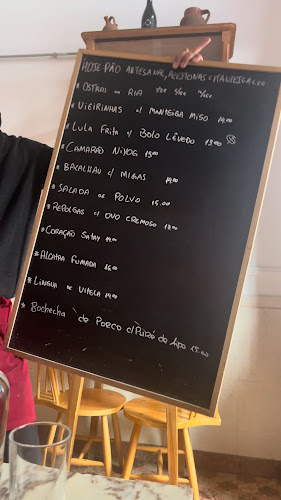 HOJE PÃO ARTESANAL, AZEITONAS E MANTEIGA
* OSTRAS DA RIA
* VIEIRINHAS C/ MANTEIGA MISO 14.00
* LULA FRITA C/ BOLO LÊVEDO 13.00
* CAMARÃO NIKOS 15.00
* BACALHAU C/ MIGAS 14.00
* SALADA DE POLVO 15.00
* REPOLGAS C/ OVO CREMOSO 12.00
* CORAÇÃO SATAY 14.00
* ALCATRA FUMADA 16.00
* LINGUA DE VITELA 14.00
* Bochecha de PORCO C/ Puré de Aipo 15.00